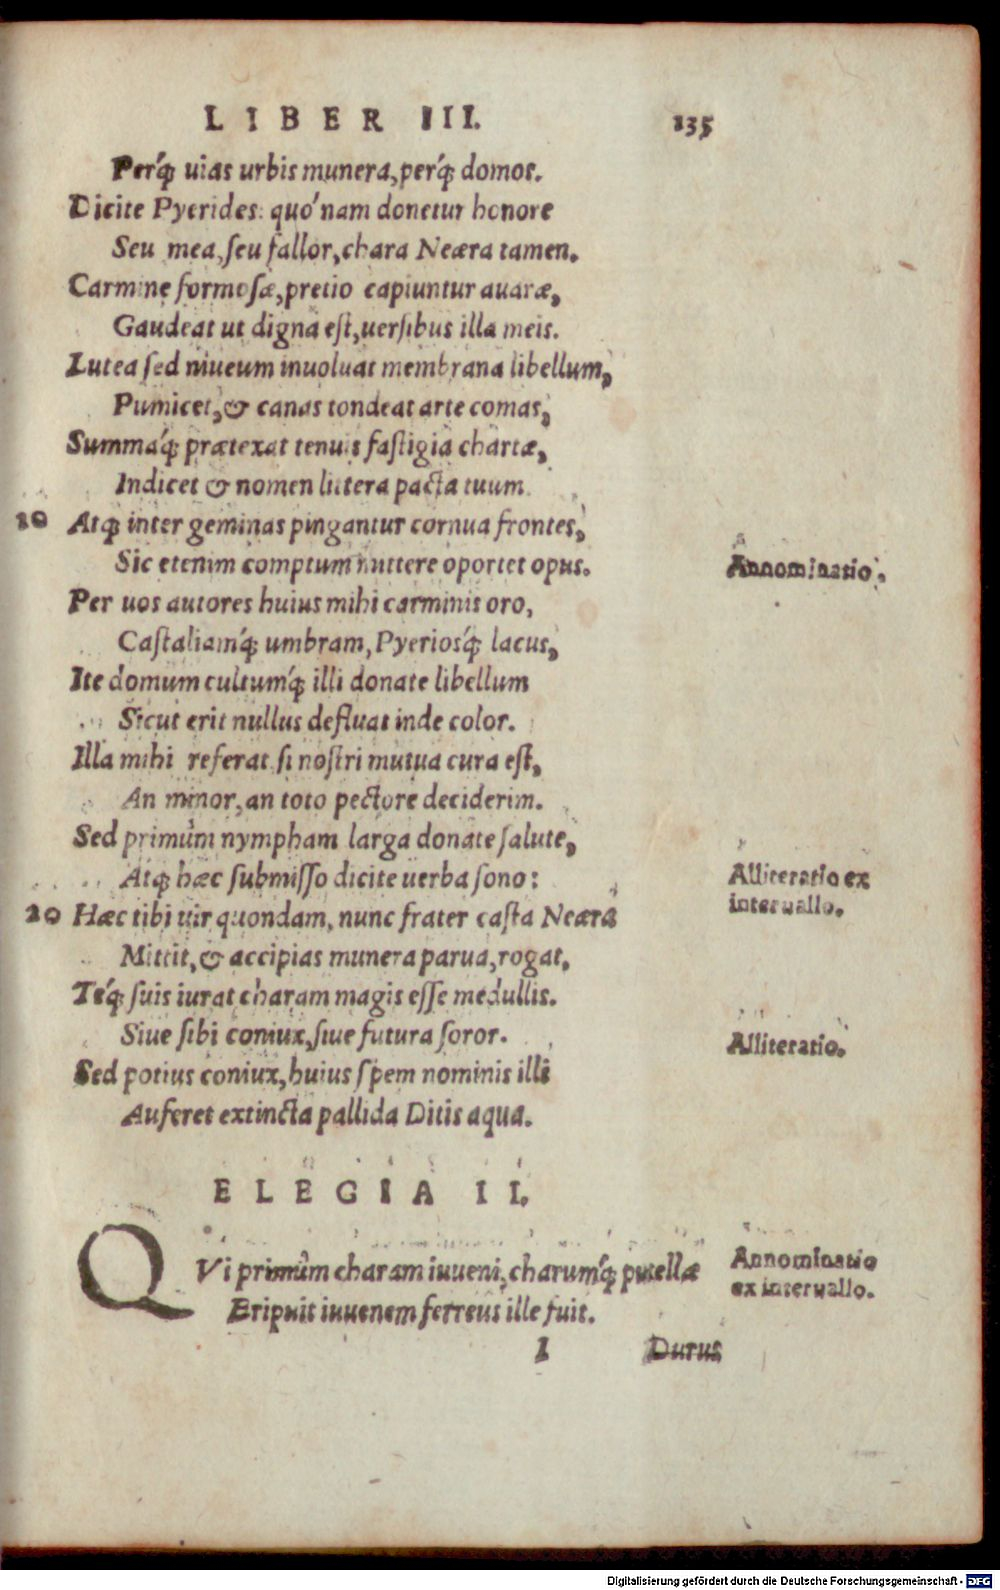 LIBER III. 135
Perq́; uias urbis munera, perq́; domos.
Dicite Pyerides: quó nam donetur honore
Seu mea, seu fallor, chara Neæra tamen.
Carmine formosæ, pretio capiuntur auaræ,
Gaudeat ut digna est, uersibus illa meis.
Lutea sed niueum inuoluat membrana libellum,
Pumicet, & canas tondeat arte comas,
Summaq́; prætexat tenuis fastigia chartæ,
Indicet & nomen littera pacta tuum.
10 Atq; inter geminas pingantur cornua frontes,
Sic etenim comptum mittere oportet opus. Annominatio.
Per uos autores huius mihi carminis oro,
Castaliamq́; umbram, Pyeriosq́; lacus,
Ite domum cultumq́; illi donate libellum
Sicut erit nullus defluat inde color.
Illa mihi referat si nostri mutua cura est,
An minor, an toto pectore deciderim.
Sed primùm nympham larga donate salute,
Atq; hæc submisso dicite uerba sono: Alliteratio ex
interuallo.
20 Hæc tibi uir quondam, nunc frater casta Neæra
Mittit, & accipias munera parua, rogat,
Teq́; suis iurat charam magis esse medullis.
Siue sibi coniux, siue futura soror. Alliteratio.
Sed potius coniux, huius spem nominis illi
Auferet extincta pallida Ditis aqua.
ELEGIA II.
QVi primùm charam iuueni, charumq́; puellæ Annominatio
ex interuallo.
Eripuit iuuenem ferreus ille fuit.
I Durus
Digitalisierung gefördert durch die Deutsche Forschungsgemeinschaft - DFG